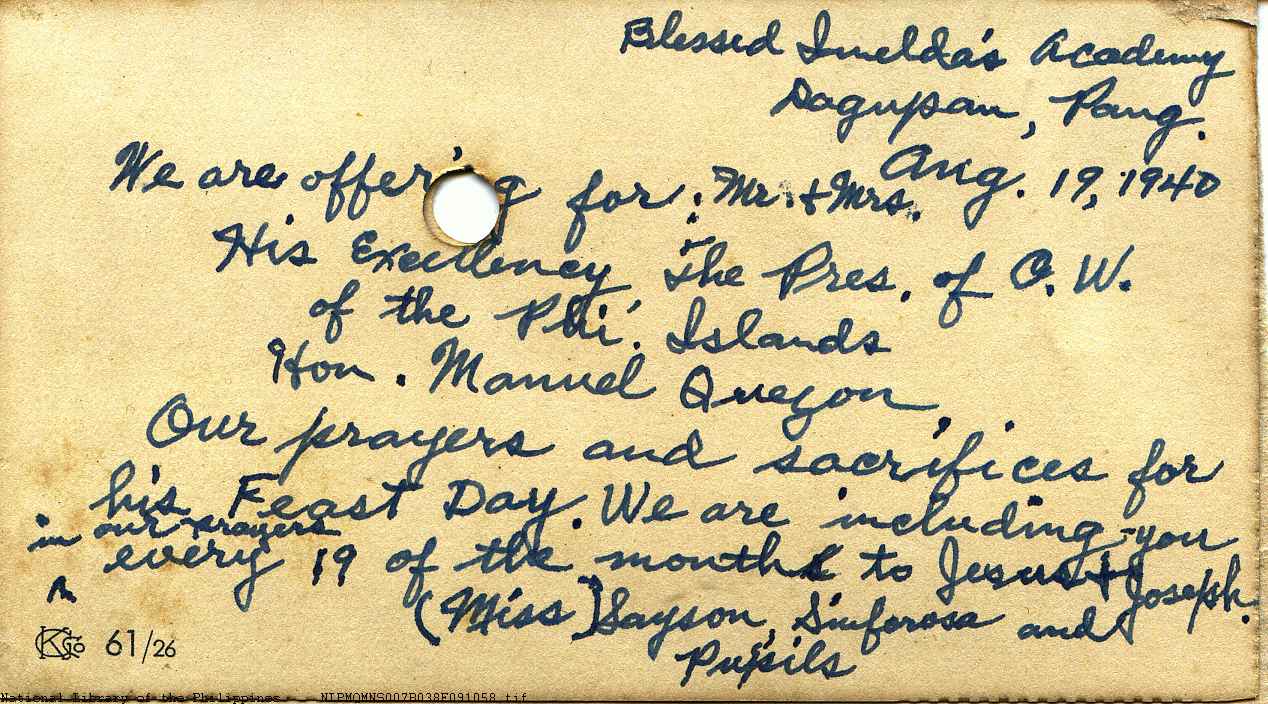 Blessed Imelda's Academy
Dagupan, Pang.
Aug. 19, 1940
We are offer'g for: Mr. + Mrs.
His Excellency The Pres. of O. W.
of the Phi. Islands
Hon. Manuel Quezon,
Our prayers and sacrifices for
his Feast Day. We are including you
in our prayers
every 19 of the month to Jesus + Joseph.
(Miss) Sayson, Sinforosa and
Pupils
61/26
National Library of the Philippines NLPMQMNS007B038F091058.tif